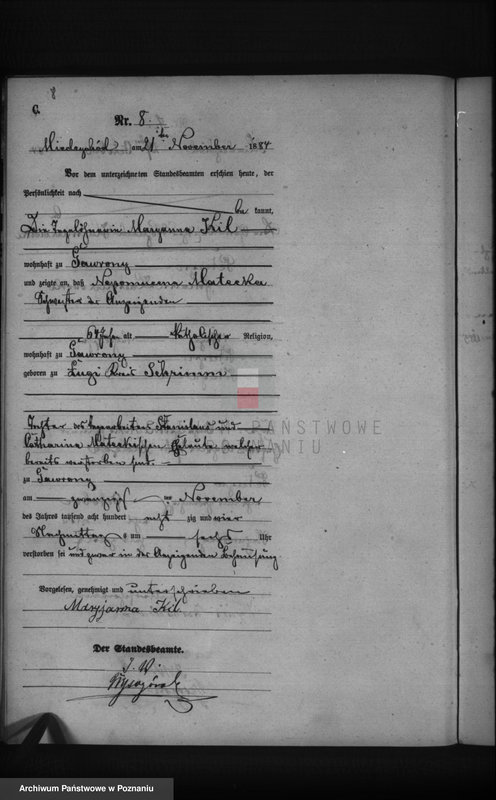 8
C.
Nr. 8.
am 21ten November 1884
Vor dem unterzeichneten Standesbeamten erschien heute, der
Persönlichkeit nach
be kannt,
Die Tagelöhnerin Maryanna Kil
wohnhaft zu Jaworony
und zeigte an, daß Nepomucena Matecka
Schwester der Anzeigenden
Jahr alt Katholischer Religion,
wohnhaft zu Jaworony
geboren zu Lugi Kreis Schrimm
Tochter des Stanislaus und
Katharina Mateckischen Eheleute welche
bereits verstorben sind.
zu Jaworony
am zwanzigs ten November
des Jahres tausend acht hundert acht zig und vier
Nachmittag s um sechs Uhr
verstorben sei und zwar in der Anzeigenden Behausung
Vorgelesen, genehmigt und unterschrieben
Maryjanna Kil
Der Standesbeamte.
J. V.
PAŃSTWOWE
POZNANIU
Archiwum Państwowe w Poznaniu